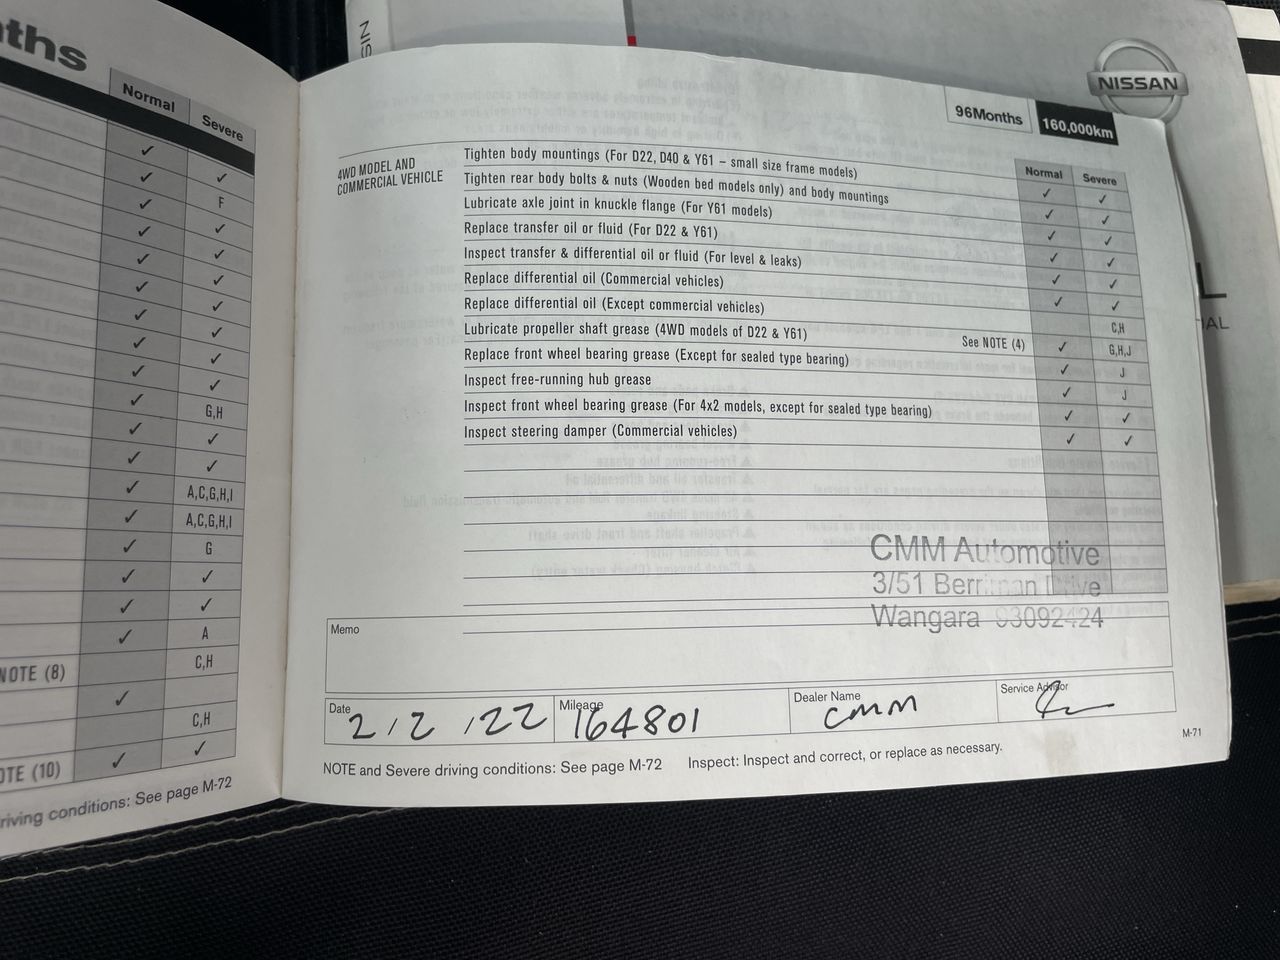 ths
Normal Severe
✓ ✓
✓ F
✓ ✓
✓ ✓
✓ ✓
✓ ✓
✓ ✓
✓ ✓
✓ ✓
✓ G,H
✓ ✓
✓ ✓
✓ A,C,G,H,I
✓ A,C,G,H,I
✓ G
✓ ✓
✓ ✓
✓ A
NOTE (8) C,H
✓
C,H
OTE (10) ✓ ✓
riving conditions: See page M-72
NISSAN
96Months 160,000km
4WD MODEL AND
COMMERCIAL VEHICLE
Normal Severe
Tighten body mountings (For D22, D40 & Y61 – small size frame models) ✓ ✓
Tighten rear body bolts & nuts (Wooden bed models only) and body mountings ✓ ✓
Lubricate axle joint in knuckle flange (For Y61 models) ✓ ✓
Replace transfer oil or fluid (For D22 & Y61) ✓ ✓
Inspect transfer & differential oil or fluid (For level & leaks) ✓ ✓
Replace differential oil (Commercial vehicles) ✓ ✓
Replace differential oil (Except commercial vehicles) C,H
Lubricate propeller shaft grease (4WD models of D22 & Y61) See NOTE (4) ✓ G,H,J
Replace front wheel bearing grease (Except for sealed type bearing) ✓ J
Inspect free-running hub grease ✓ J
Inspect front wheel bearing grease (For 4x2 models, except for sealed type bearing) ✓ ✓
Inspect steering damper (Commercial vehicles) ✓ ✓
CMM Automotive
3/51 Berriman Drive
Wangara 93092424
Memo
Date 2/2/22
Mileage 164801
Dealer Name CMM
Service Advisor
NOTE and Severe driving conditions: See page M-72 Inspect: Inspect and correct, or replace as necessary.
M-71